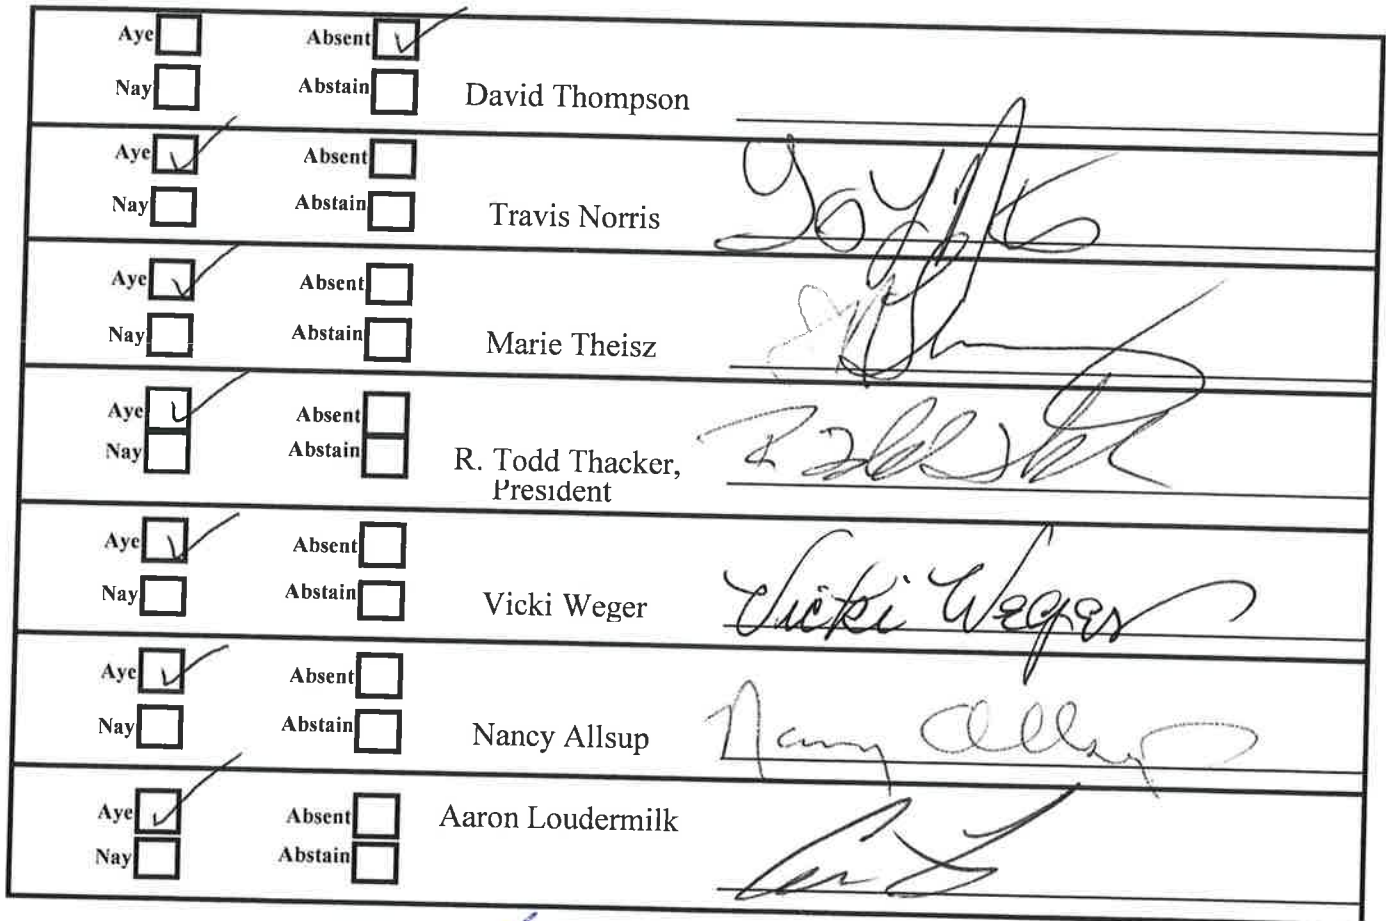 Aye Absent ✓
Nay Abstain David Thompson
Aye ✓ Absent
Nay Abstain Travis Norris
Aye ✓ Absent
Nay Abstain Marie Theisz
Aye ✓ Absent
Nay Abstain R. Todd Thacker,
President R Todd Thacker
Aye ✓ Absent
Nay Abstain Vicki Weger Vicki Weger
Aye ✓ Absent
Nay Abstain Nancy Allsup Nancy Allsup
Aye ✓ Absent Aaron Loudermilk
Nay Abstain